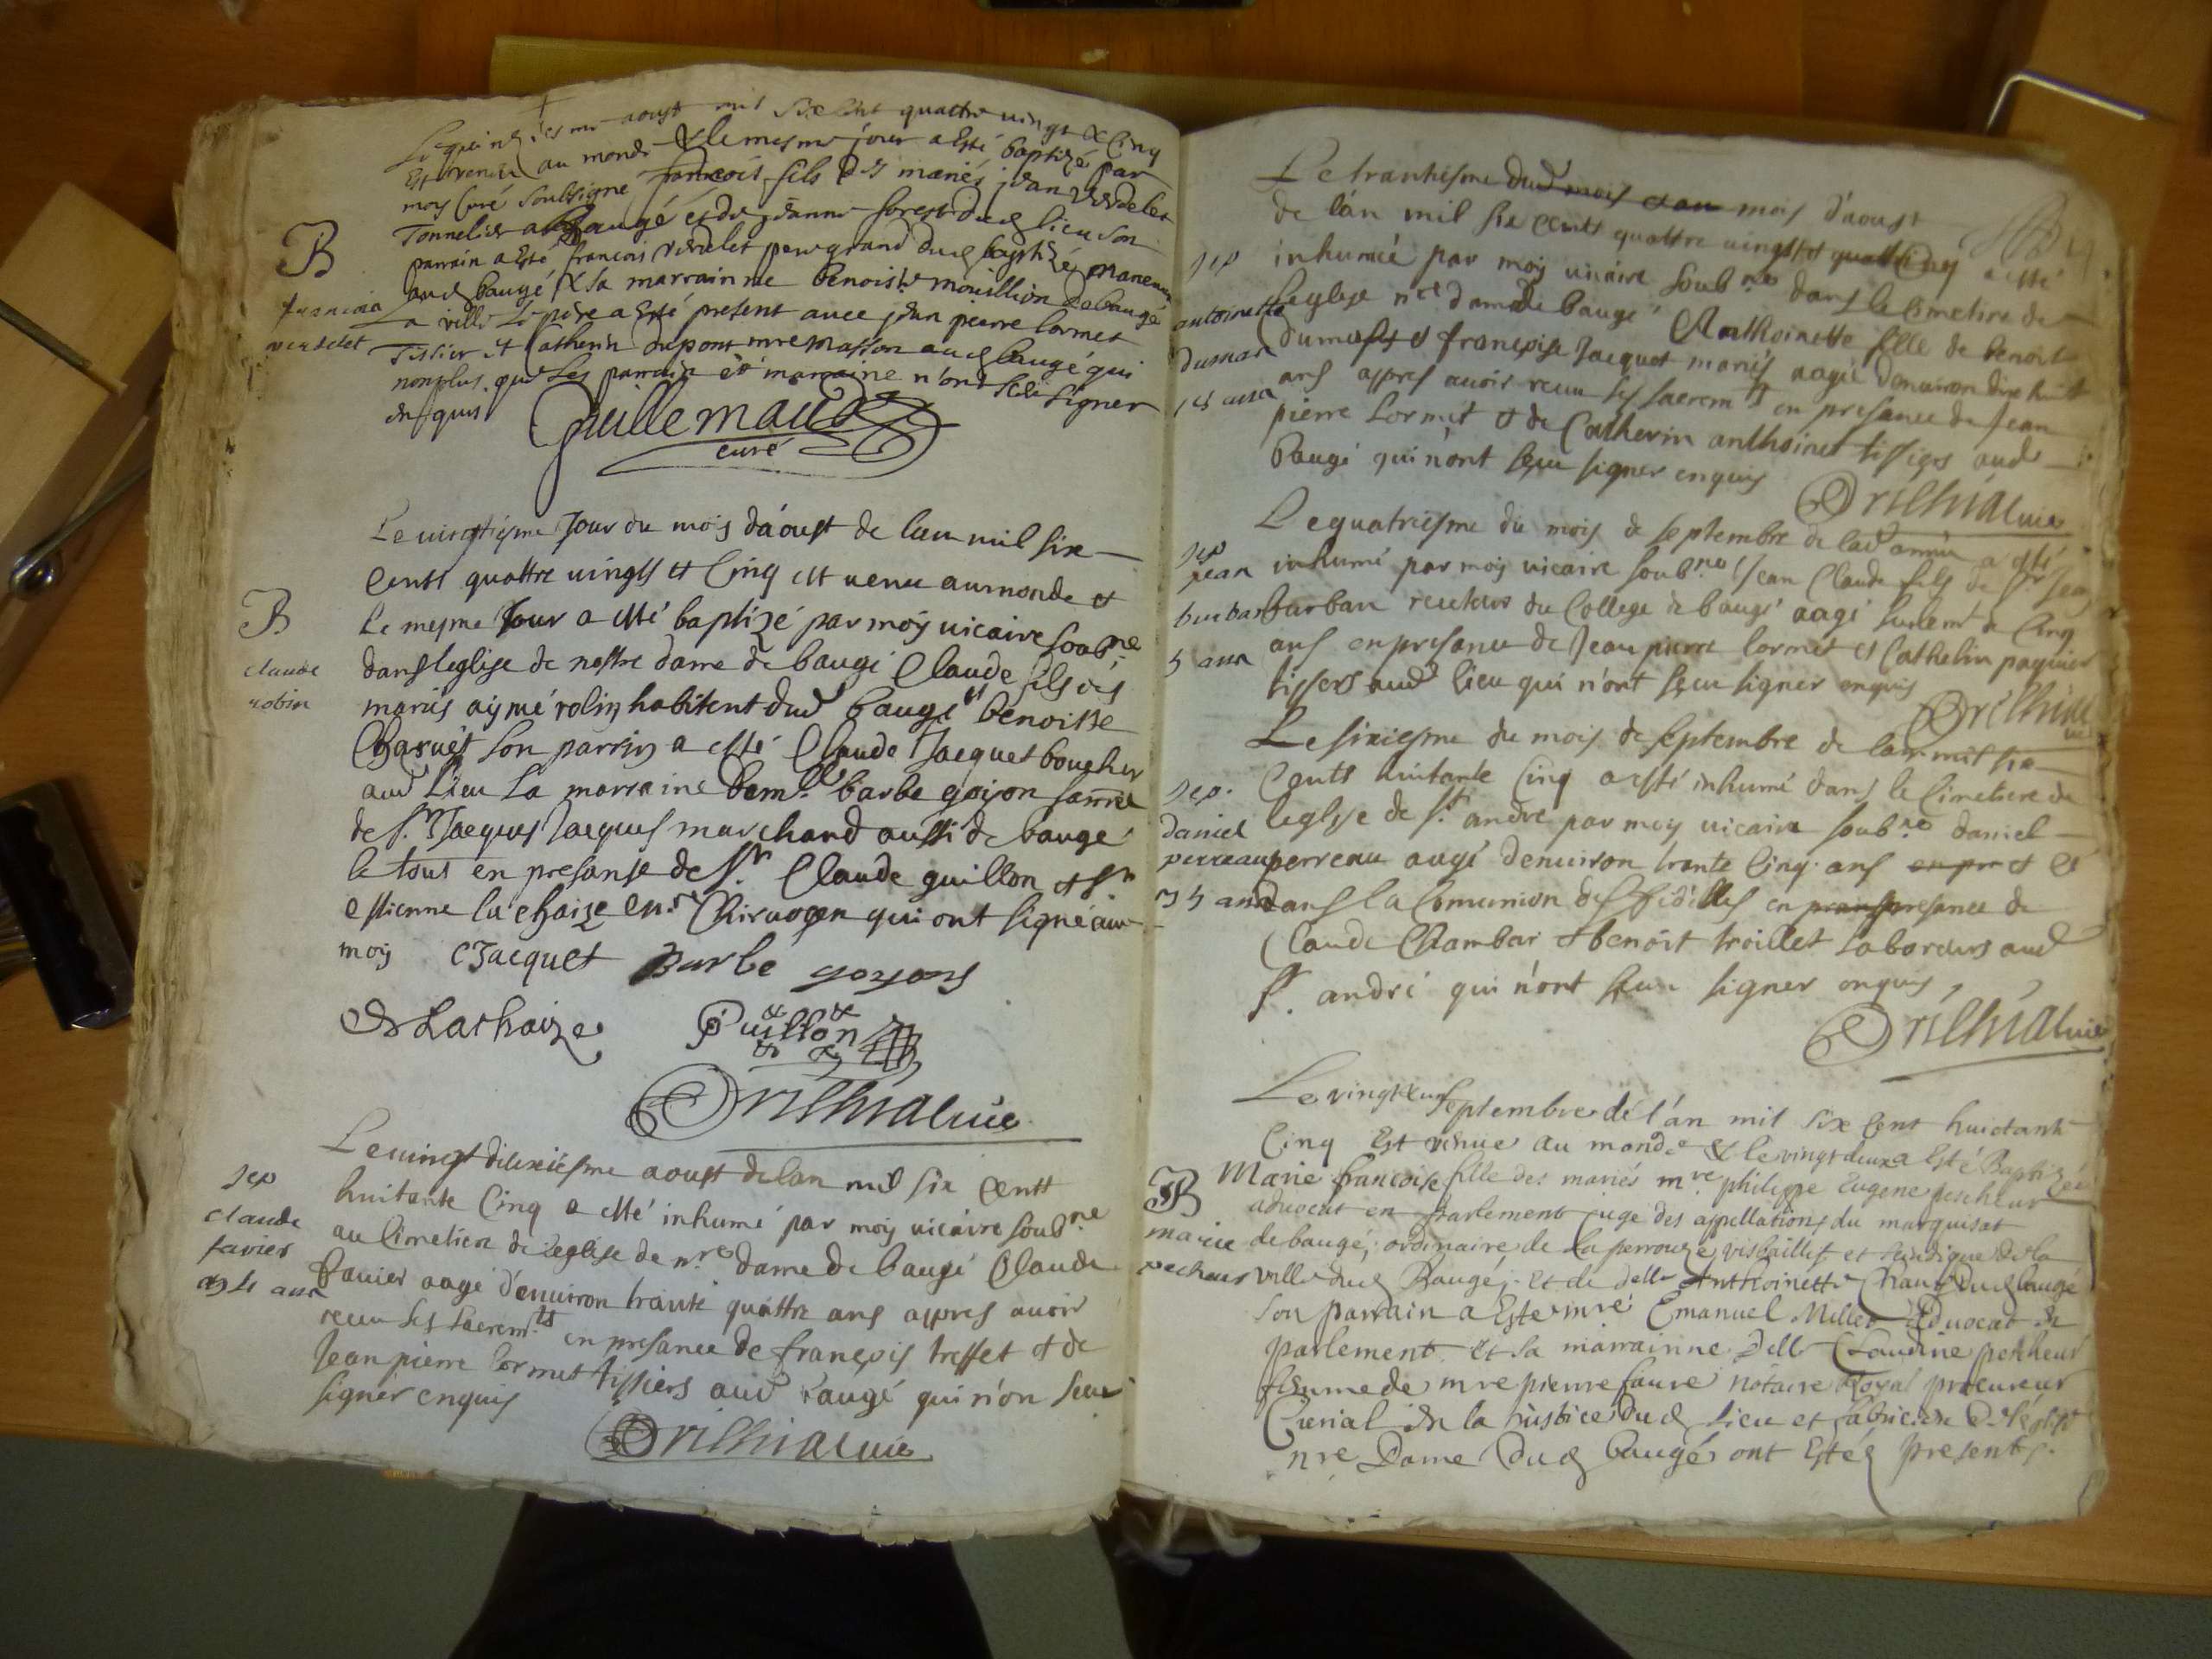 Le quinziesme aoust mil six cent quattre vingt & Cinq
Est venu au monde & le mesme jour a Esté baptizé par
moy Curé soubsigné françois fils des mariés jean verdelet
Tonnelier a Baugé et de jeanne forest dud lieu son
B
francois
verdelet
parrain a Esté francois verdelet pere grand dud baptizé
aud baugé & sa marrainne benoiste mouillion de baugé
La ville Le père a Esté present avec jean pierre lormet
Tissier et Catherin dupont mre masson aud baugé qui
nonplus que Les parrain et marraine n'ont sceu signer
enquis
Guillemaud
curé
Le vingtiesme Jour du mois d'aoust de l'an mil six
Cents quattre vingts et Cinq est venu au monde et
B
claude
robin
Le mesme Jour a esté baptizé par moy vicaire soubné
dans leglise de nostre dame de baugé Claude fils des
mariés aymé robin habitent dud baugé et benoisse
Charvet son parrin a esté Claude Jacquet boucher
aud Lieu La marraine Demlle barbe goyon famme
de Sr Jacques Jacquet marchand aussi de baugé
le tous en presanse de Sr Claude guillon et Sr
estienne lachaize Chirurgen qui ont signé avec
moy CJacquet Barbe goyons
Lachaize Guillon
Orilhia vic
Sep
claude
favier
34 ans
Le vingt diexiésme aoust de lan mil six Cents
huitante Cinq a esté inhumé par moy vicaire soubné
au Cimetiere de leglise de nre dame de baugé Claude
favier aagé d'environ trante quattre ans appres avoir
receu ses sacremts en presance de françois treffet et de
Jean pierre lormet tissiers aud baugé qui n'on sceu
signer enquis
Orilhia vic
Le trantiesme dud mois et an mois d'aoust
de l'an mil six cents quattre vingts et Cinq a esté
Sep
antoinette
dumas
18 ans
inhumée par moy vicaire soubné dans le Cimetiere de
Leglise nre dame de baugé Anthoinette fille de benoit
dumas et françoise Jacquet mariés aagée d'environ dix huit
ans appres avoir receu ses sacremts en presance de Jean
pierre Lormet et de Catherin anthoinet tissiers aud
baugé qui n'ont sceu signer enquis
Orilhia vic
Sep
jean
barban
5 ans
Le quatriesme du mois de septembre de lad année a esté
inhumé par moy vicaire soubné Jean Claude fils de Sr Jean
barban recteur du College de baugé aagé seulemt de Cinq
ans en presance de Jean pierre lormet et Cathelin paquier
tissers aud lieu qui n'ont sceu signer enquis
Orilhia vic
Le sixiesme du mois de septembre de lan mil six
Sep.
daniel
perreau
35 ans
Cents huitante Cinq a esté inhumé dans le Cimetiere de
leglise de St andré par moy vicaire soubné daniel
perreau aagé denviron trante Cinq ans en pr et
dans la Comunion des fidelles en presance de
Claude Chambar et benoit troillet Laboreurs aud
St. andré qui n'ont sceu signer enquis
Orilhia vic
Le vingt un septembre de l'an mil six Cent huictante
Cinq Est venue au monde & le vingt deux a Esté Baptizée
B
marie
pecheur
Marie francoise fille des mariés mre philippe Eugene pecheur
advocat en parlement juge des appellations du marquisat
de baugé, ordinaire de La perrouze, et scindique de la
ville dud Baugé, Et de delle Anthoinette Charv dud baugé
Son parrain a Esté mre Emanuel Millet advocat en
parlement. Et sa marrainne delle Claudine pecheur
femme de mre pierre faure notaire Royal procureur
Curial en la justice dud lieu et fabricien de l'église
nre Dame dud baugé ont Estés presents.